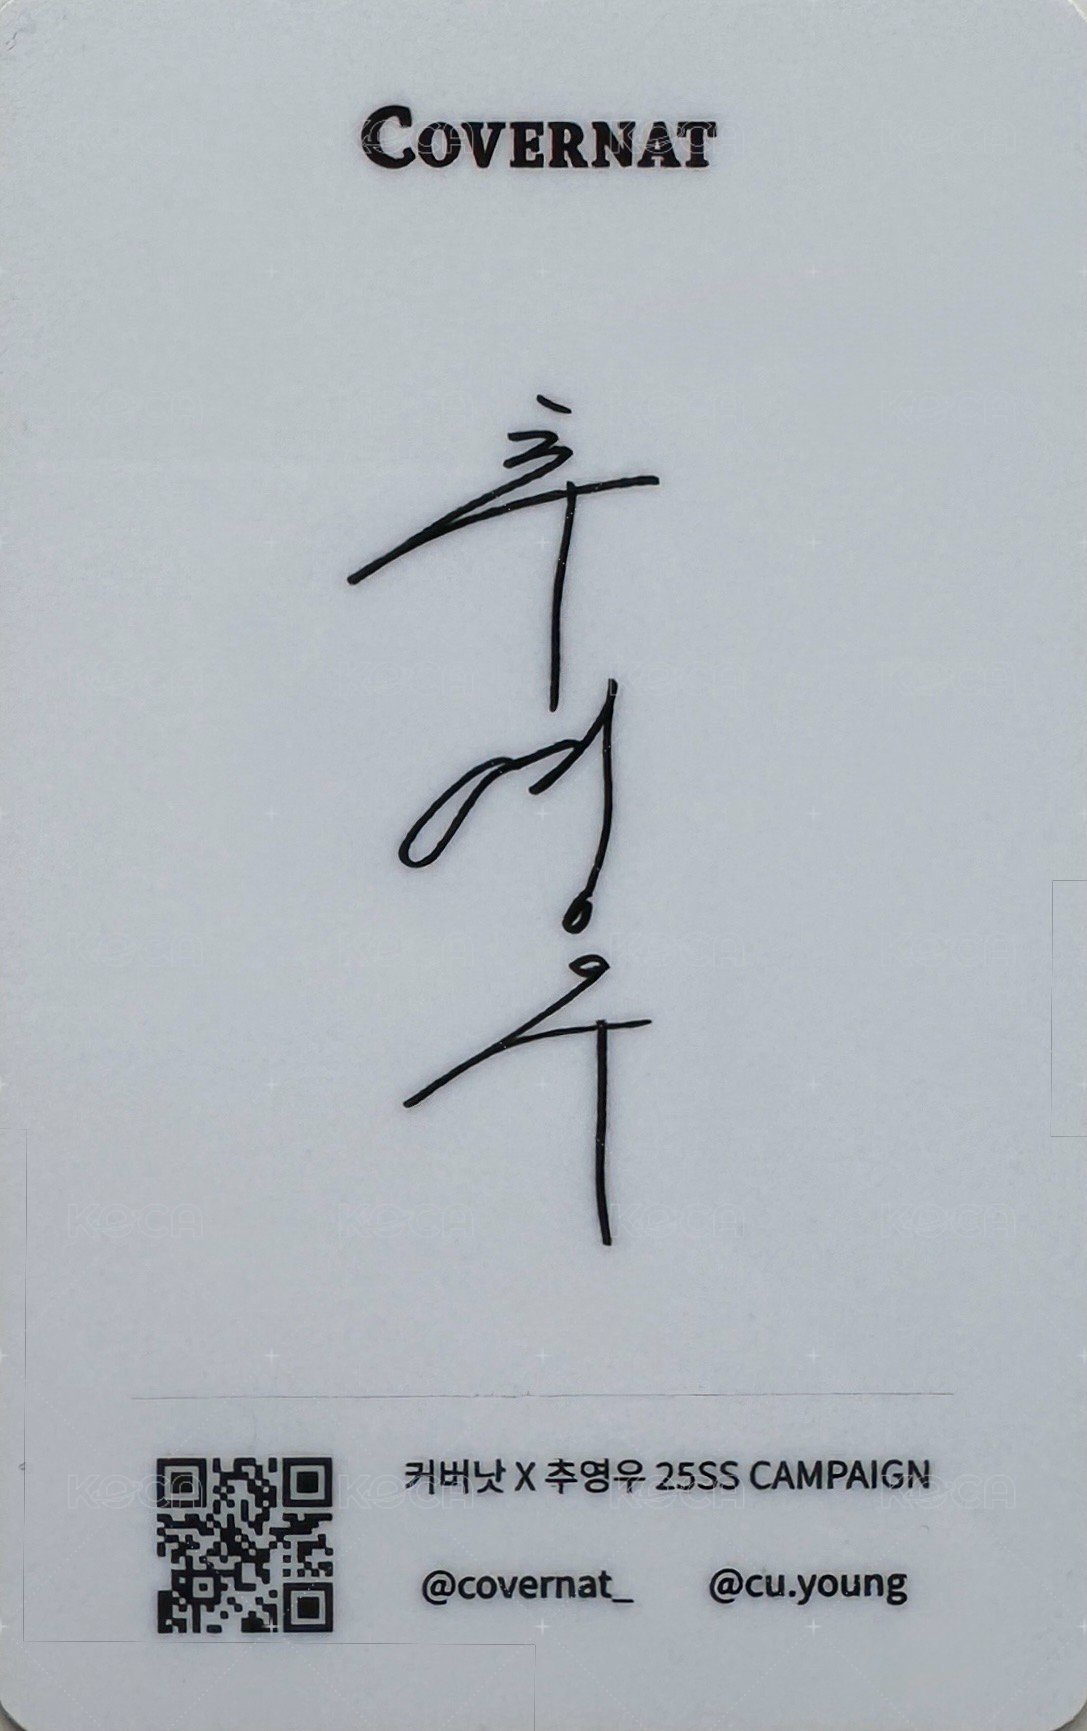 COVERNAT
추
영
우
커버낫 X 추영우 25SS CAMPAIGN
@covernat_ @cu.young